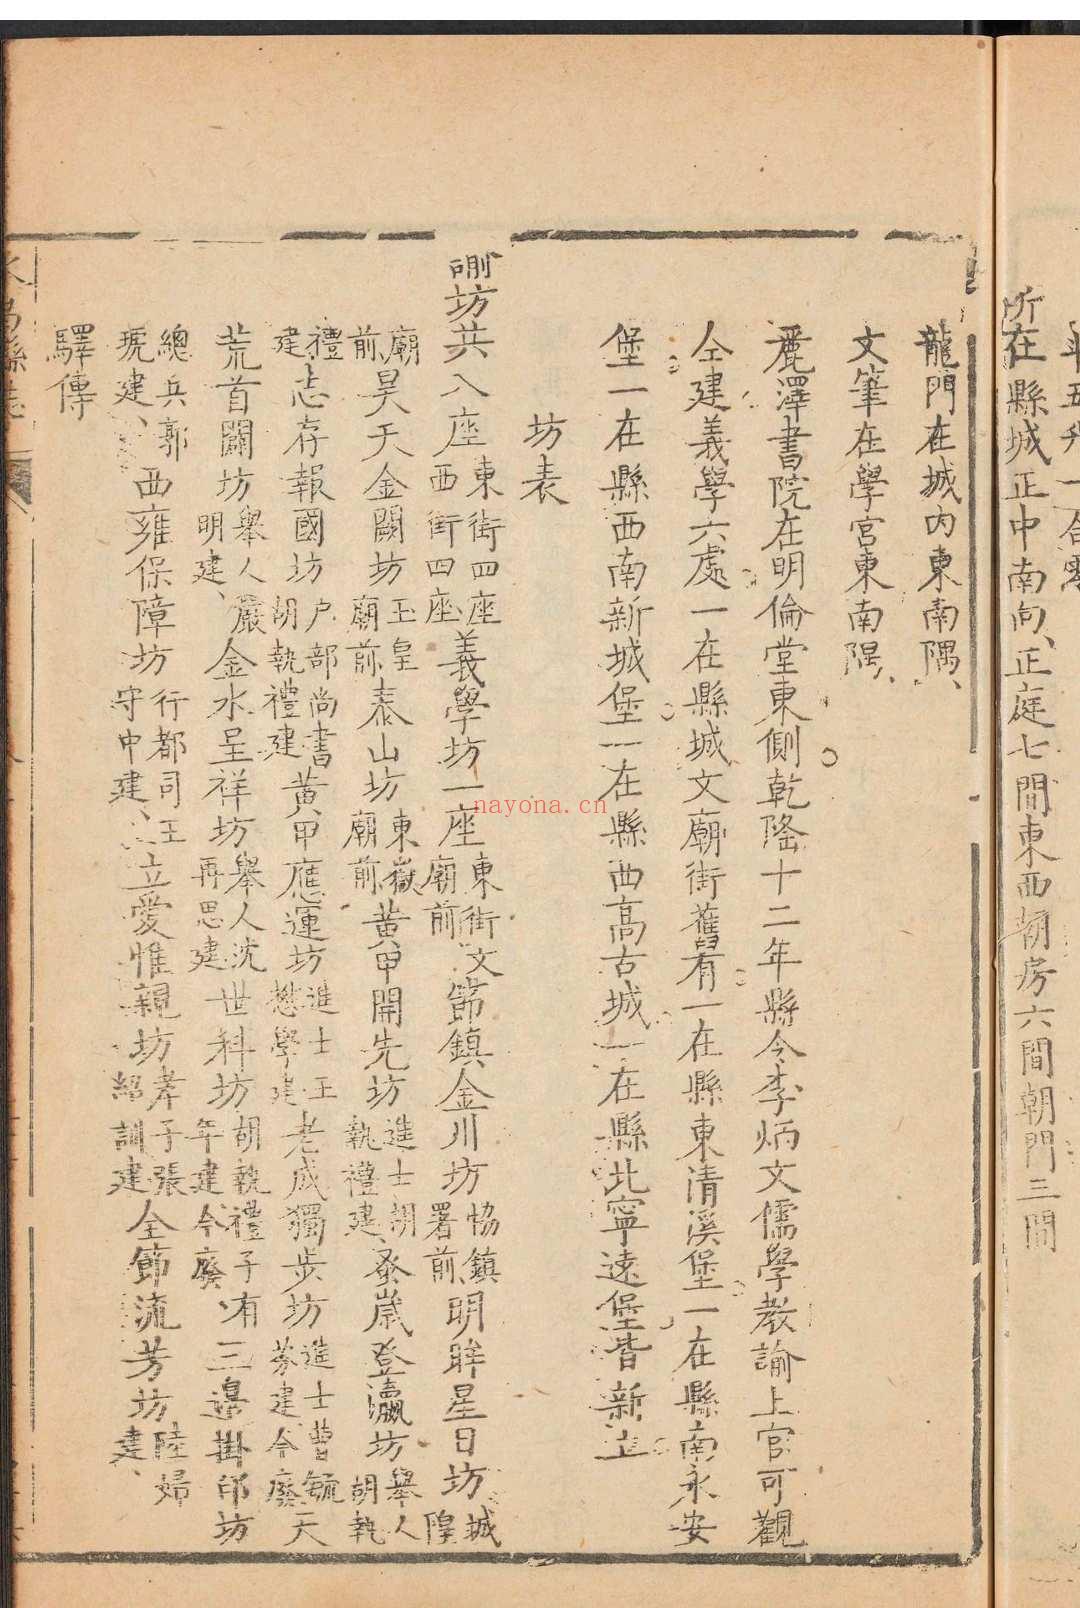 所在縣城正中南向、正庭七間東西朝房六間朝門三間
龍門在城內東南隅、
文筆在學宮東南隅、
麗澤書院在明倫堂東側乾隆十二年縣令李炳文儒學教諭上官可觀
仝建義學六處一在縣城文廟街舊有一在縣東清溪堡一在縣南永安
堡一在縣西南新城堡一在縣西高古城一在縣北寧遠堡皆新立
坊表
坊共八座東街四座西街四座義學坊一座東街文廟前節鎮金川坊協鎮署前明眸星日坊城隍
廟前昊天金闕坊玉皇廟前泰山坊東嶽廟前黃甲開先坊進士胡執禮建蚤歲登瀛坊舉人胡執
禮建志存報國坊户部尚書胡執禮建黃甲應運坊進士王懋學建老成獨步坊進士曹毓芬建今廢天
荒首闢坊舉人嚴明建、金水呈祥坊舉人沈再思建世科坊胡執禮子有年建今廢、三邊掛印坊
總兵郭琥建、西雍保障坊行都司王守中建、立愛惟親坊孝子張紹訓建全節流芳坊陸婦建、
驛傳
nayona.cn